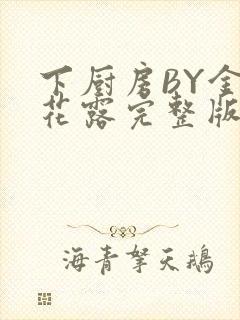 下厨房BY金
花露完整版
海青拏天鹅